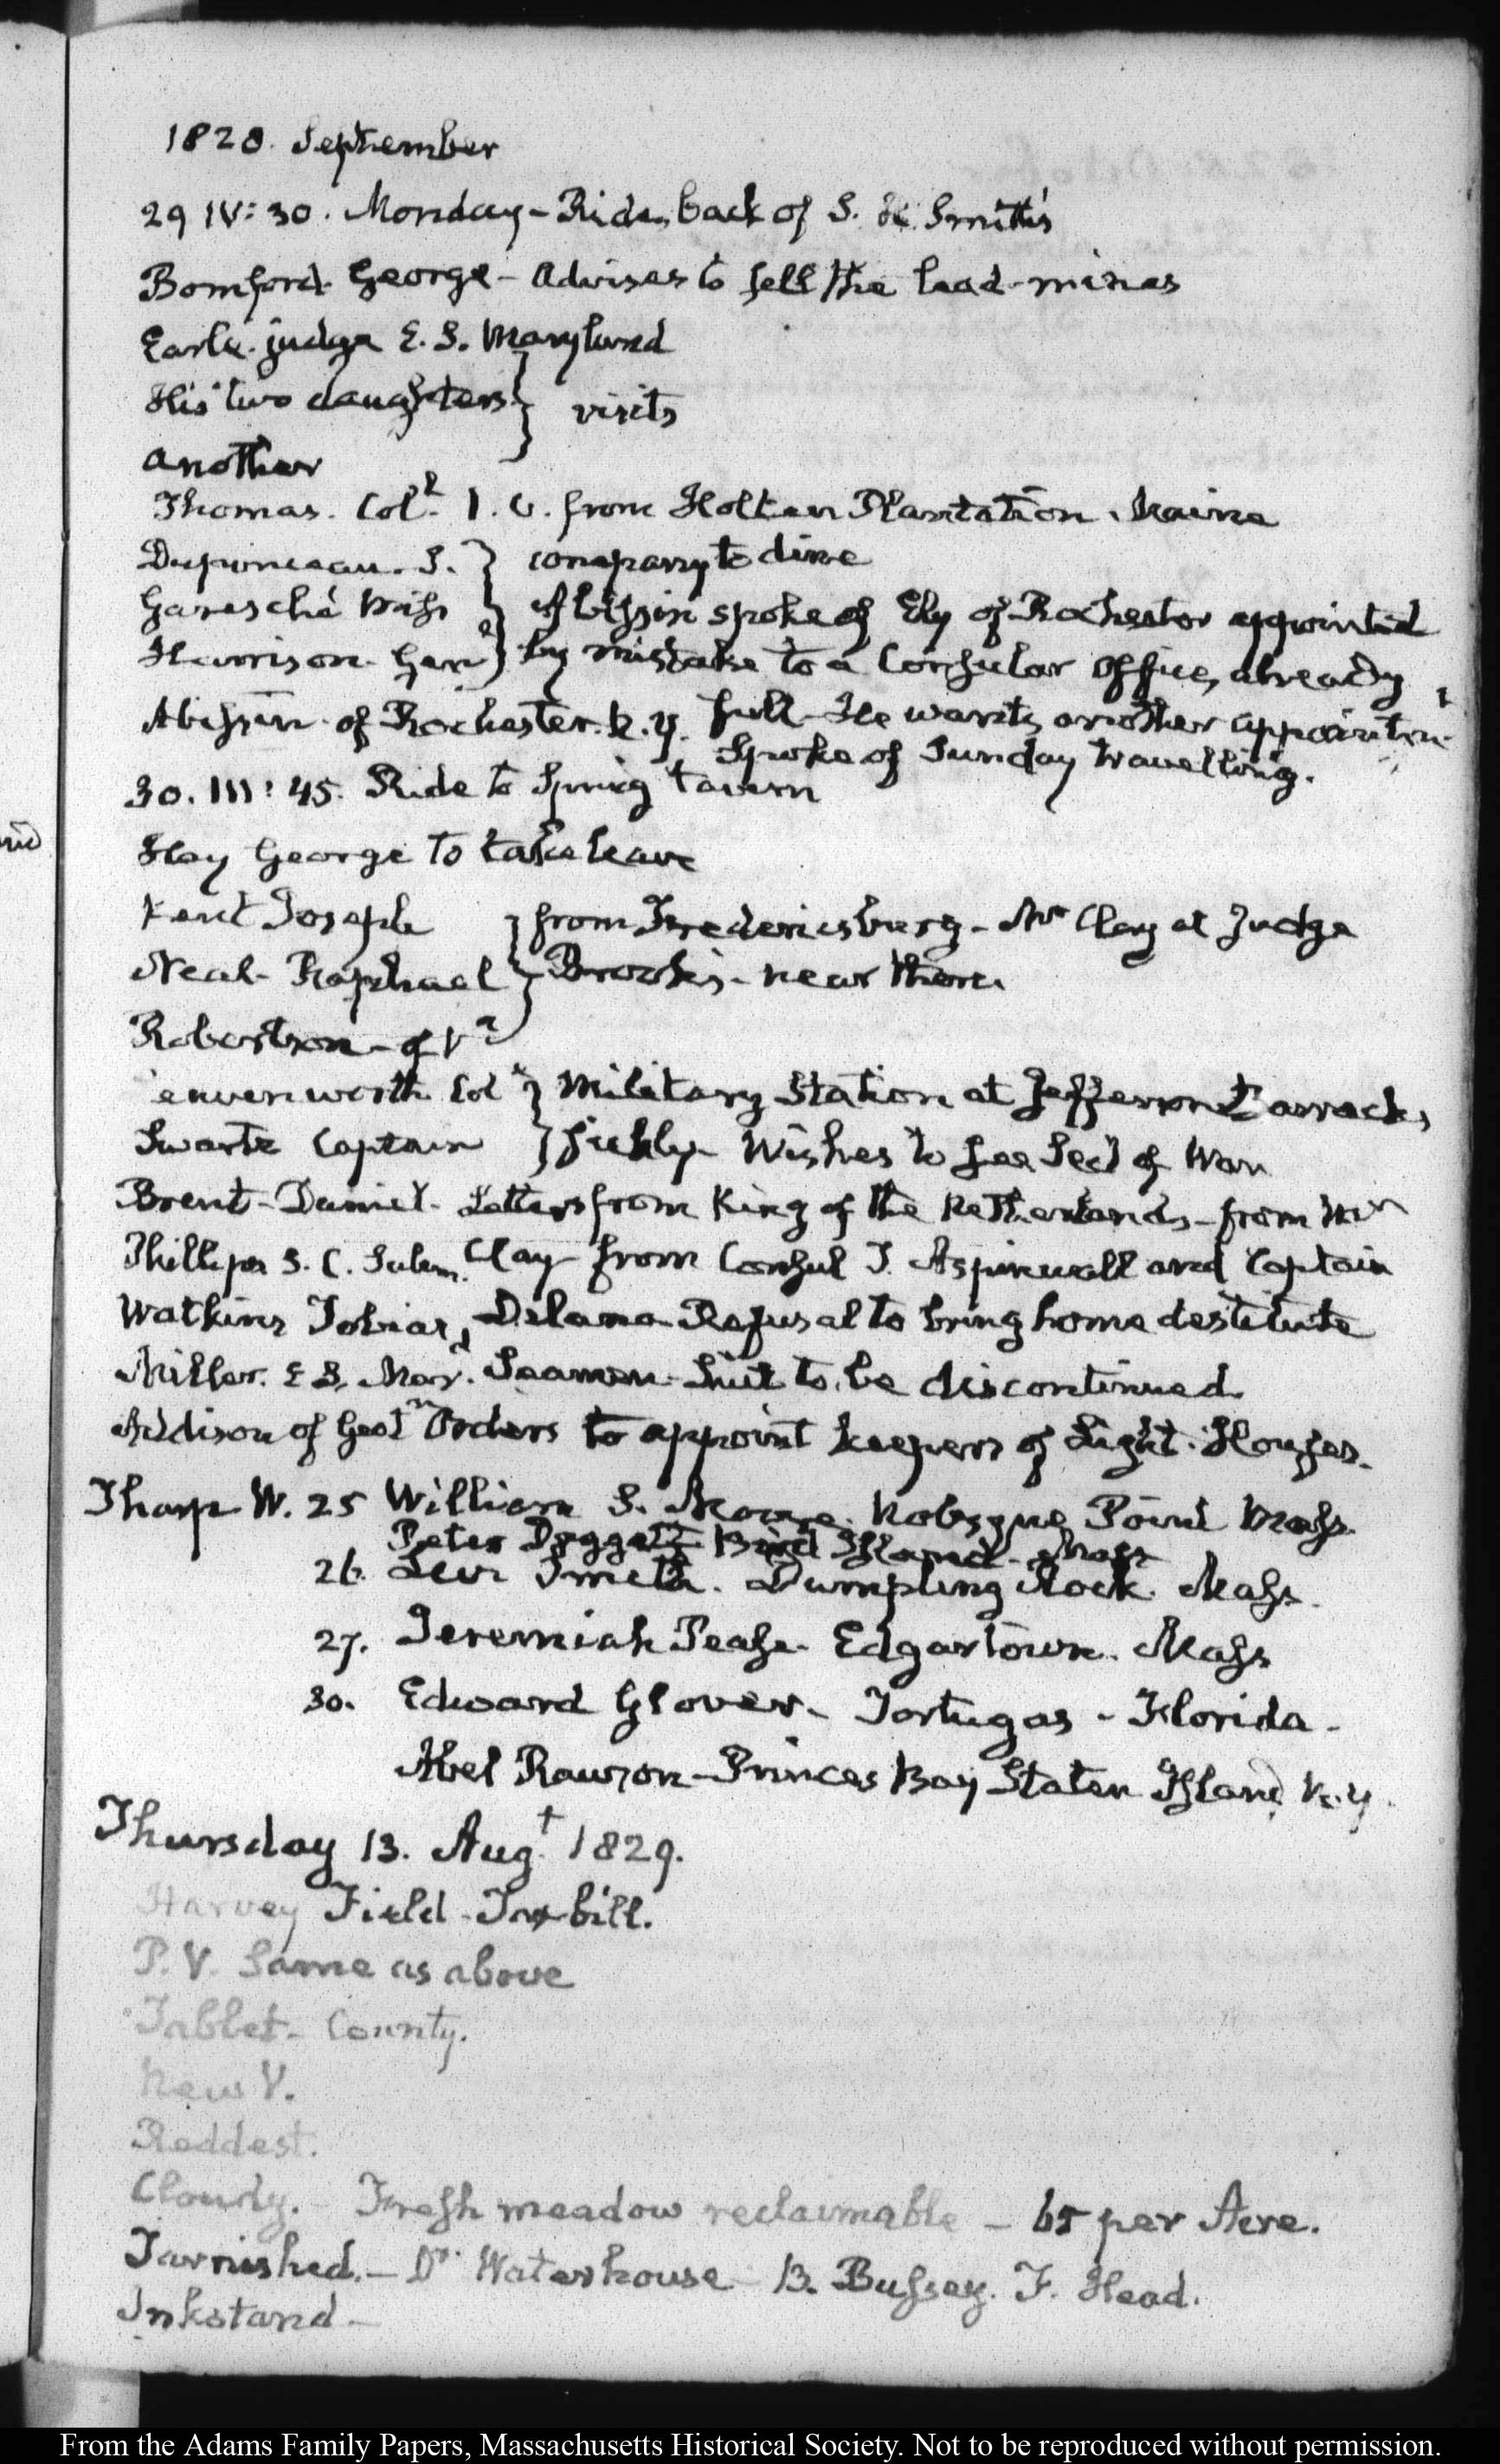 1828. September
29 IV: 30. Monday - Ride back of S. H. Smith's
Bomford. George - Advises to sell the lead-mines
Earle. judge E. S. Maryland
His two daughters } visits
another
Thomas. Col.l I. C. from Holten Plantation. Maine
Duponceau. S. } company to dine
Garesché Miss } A bissin spoke of Ely of Rochester appointed
Harrison. Gen.l } by mistake to a Consular Office, already
Abissin. of Rochester. N. Y. full - He wants another appointm.t
Spoke of Sunday travelling.
30. III: 45. Ride to Spring tavern
Hay George to take leave
Kent Joseph } from Fredericsburg - Mr Clay at Judge
Neal- Raphael } Brooke's - near there.
Robertson - of V.a
eavenworth Col.l } Military Station at Jefferson Barracks
Swartz Captain } sickly - Wishes to see Sec.y of War
Brent - Daniel - Letters from King of the Netherlands - from Mr
Phillips S. C. Salem. Clay - from Consul T. Aspinwall and Captain
Watkins Tobias, Delano Refusal to bring home destitute
Miller. E S. Mar.d Seamen - Suit to be discontinued
Addison of Geot.n Orders to appoint keepers of Light-Houses.
Tharp W. 25 William S. Moore. Nobsque Point Mass.
Peter Daggett Bird Island - Mass
26. Levi Smith. Dumpling Rock. Mass.
27. Jeremiah Pease. Edgartown. Mass
30. Edward Glover - Tortugas - Florida -
Abel Rawson - Princes Bay Staten Island N. Y.
Thursday 13. Aug.t 1829.
Harvey Field - Tax bill.
P. V. Same as above
Tablet - County.
New V.
Reddest.
Cloudy. - Fresh meadow reclaimable - 65 per Acre.
Tarnished. - Dr. Waterhouse B. Bussey. F. Head.
Inkstand -
From the Adams Family Papers, Massachusetts Historical Society. Not to be reproduced without permission.